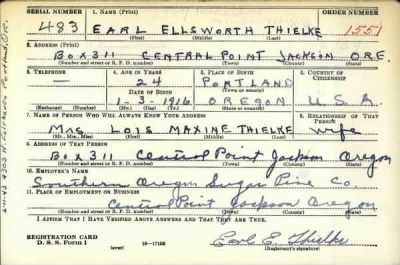 SERIAL NUMBER 1. NAME (Print) ORDER NUMBER
483 EARL ELLSWORTH THIELKE 1551
(First) (Middle) (Last)
2. ADDRESS (Print)
BOX 311 CENTRAL POINT JACKSON ORE.
(Number and street or R. F. D. number) (Town) (County) (State)
3. TELEPHONE 4. AGE IN YEARS 5. PLACE OF BIRTH 6. COUNTRY OF CITIZENSHIP
— 24 PORTLAND
DATE OF BIRTH (Town or county)
1-3-1916 OREGON U.S.A.
(Exchange) (Number) (Mo.) (Day) (Yr.) (State or country)
7. NAME OF PERSON WHO WILL ALWAYS KNOW YOUR ADDRESS 8. RELATIONSHIP OF THAT PERSON
MRS LOIS MAXINE THIELKE wife
(Mr., Mrs., Miss) (First) (Middle) (Last)
9. ADDRESS OF THAT PERSON
Box 311 Central Point Jackson Oregon
(Number and street or R. F. D. number) (Town) (County) (State)
10. EMPLOYER'S NAME
Southern Oregon Sugar Pine Co.
11. PLACE OF EMPLOYMENT OR BUSINESS
Central Point Jackson Oregon
(Number and street or R. F. D. number) (Town) (County) (State)
I AFFIRM THAT I HAVE VERIFIED ABOVE ANSWERS AND THAT THEY ARE TRUE.
REGISTRATION CARD
D. S. S. Form 1 (over) 16—17105 Earl E. Thielke
(Registrant's signature)